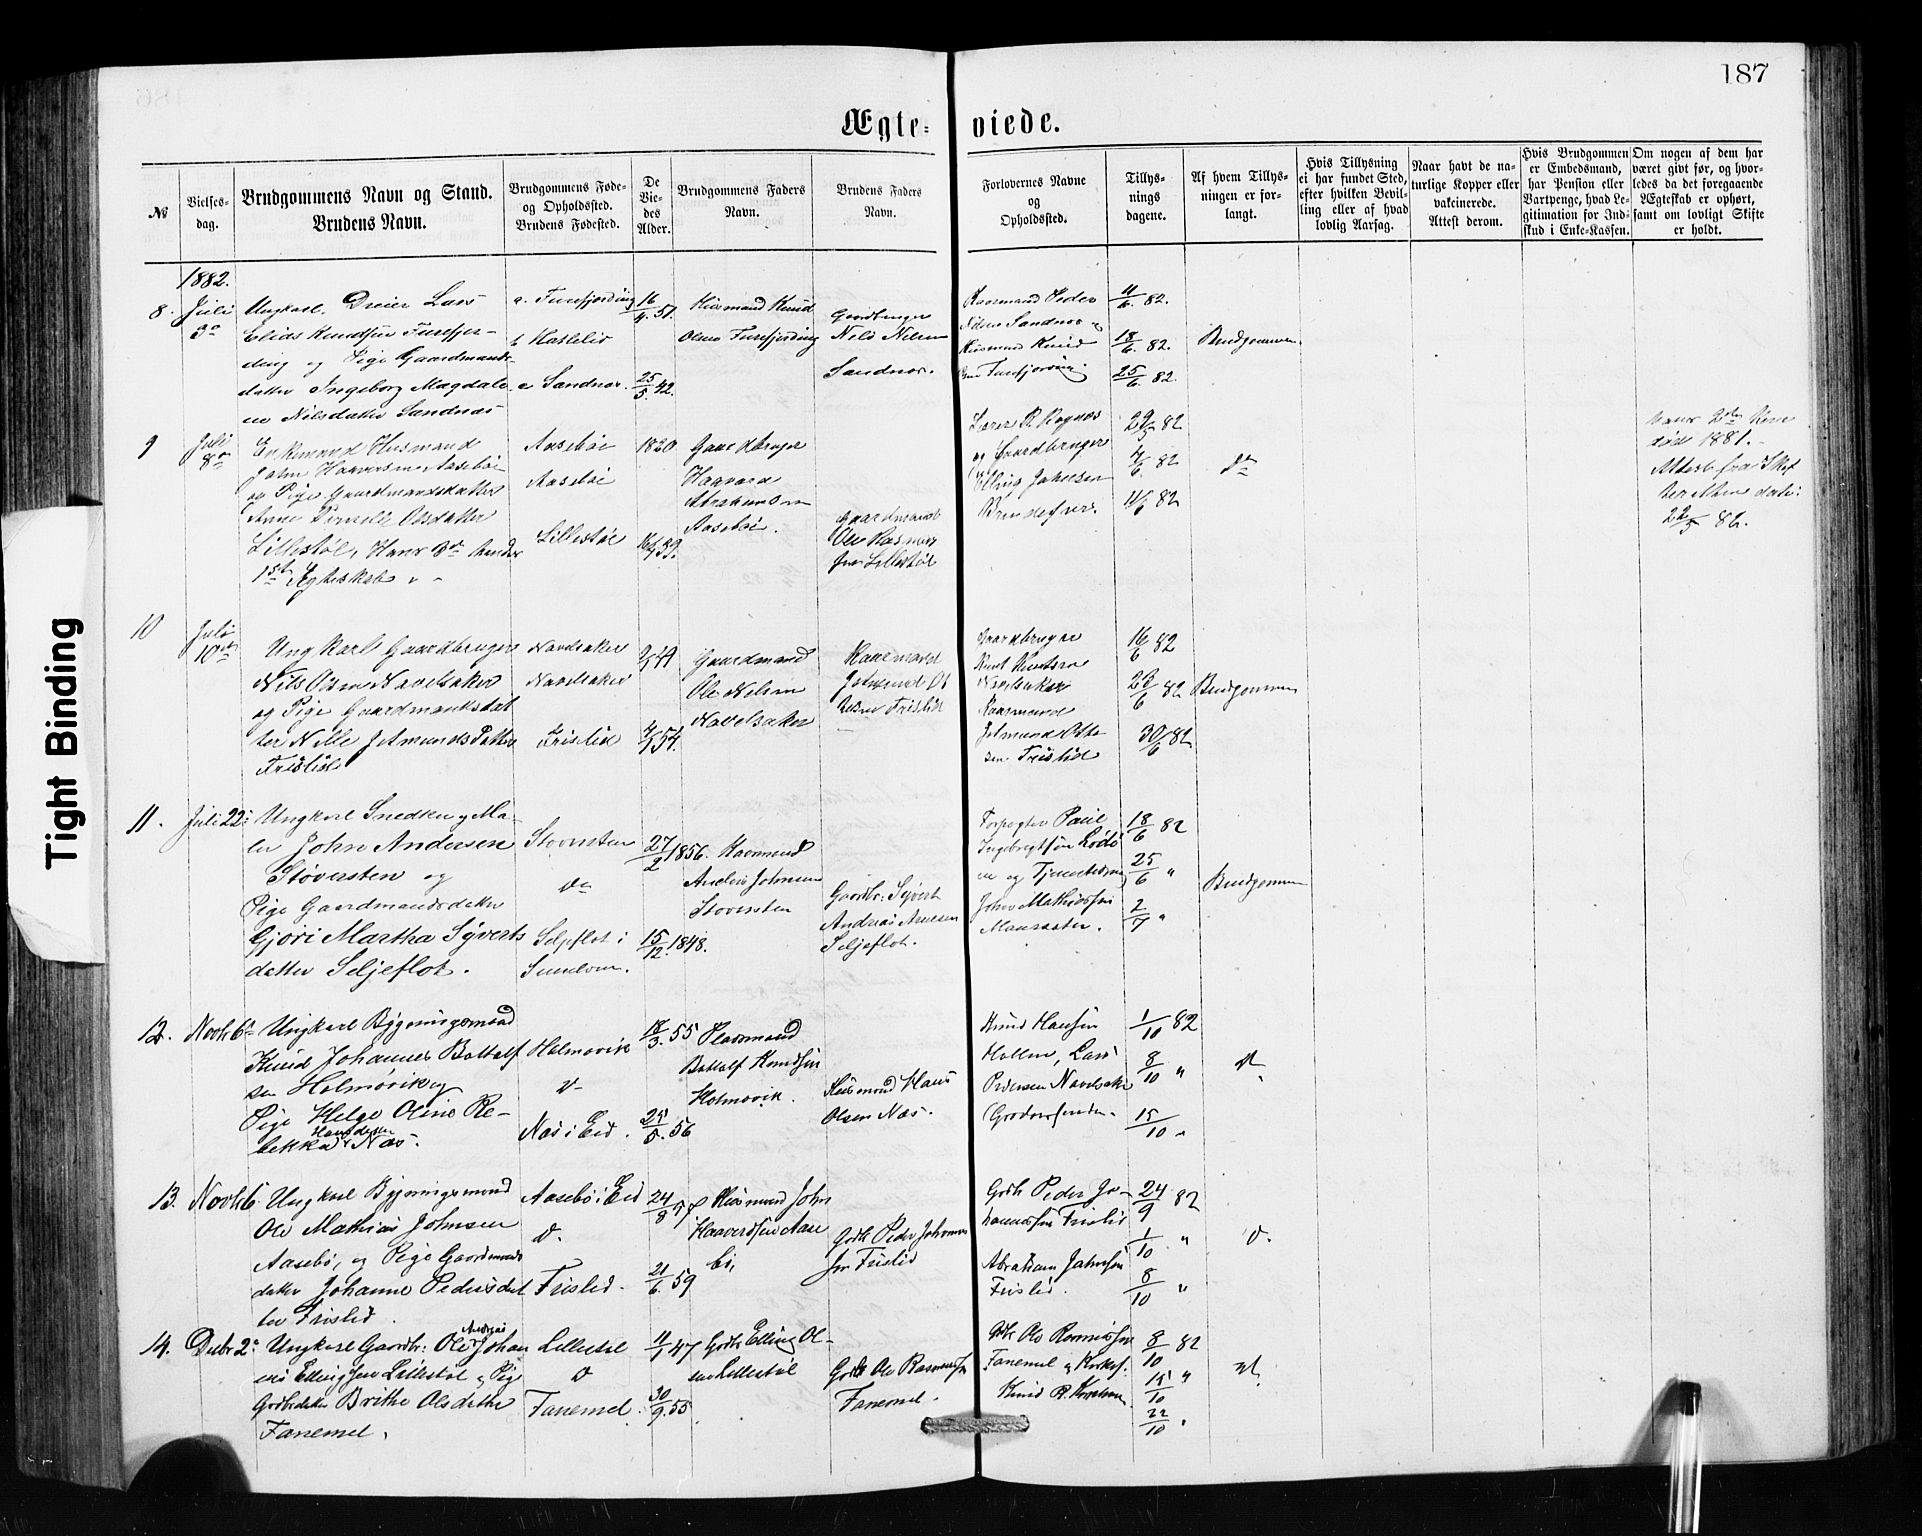 187
Ægte- viede.
№
Vielses-
dag.
Brudgommens Navn og Stand.
Brudens Navn.
Brudgommens Føde-
og Opholdssted.
Brudens Fødested.
De
Vie-
des
Alder.
Brudgommens Faders
Navn.
Brudens Faders
Navn.
Forlovernes Navne
og
Opholdssted.
Tillys-
nings
dagene.
Af hvem Tillys-
ningen er for-
langt.
Hvis Tillysning
ei har fundet Sted,
efter hvilken Bevil-
ling eller af hvad
lovlig Aarsag.
Naar havt de na-
turlige Kopper eller
vakcinerede.
Attest derom.
Hvis Brudgommen
er Embedsmand,
har Pension eller
Vartpenge, hvad Le-
gitimation for Ind-
skud i Enke-Kassen.
Om nogen af dem har
været givt før, og hvor-
ledes da det foregaaende
Ægteskab er ophørt,
samt om lovligt Skifte
er holdt.
1882.
8. Juli
3die
Ungkarl Dreier Lars
Elias Knudsen Furefjor-
ding og Pige Gaardmands-
datter Ingeborg Magdale-
ne Nilsdatter Sandnæs
Furefjording
Sandnæs.
16/4 57.
25/5 42.
Husmand Knud
Olsen Furefjording
Gaardbruger
Nils Nilsen
Sandnæs.
Kaarmand Peder
Nilsen Sandnæs
Husmand Knud
Olsen Furefjording.
11/6 82.
18/6 82.
25/6 82.
Brudgommen.
9 Juli
8de
Enkemand Husmand
John Haavardsen Aasebøe
og Pige Gaardmandsdatter
Anne Pernele Olsdatter
Lillestøl, Hans 3die hendes
1ste Ægteskab
Aasebøe
Aasebøe
Lillestøl
1820
39.
Gaardbruger
Haavard
Abrahamsen
Aasebøe.
Gaardmand
Ole Rasmus-
sen Lillestøl
Lærer R. Røgnæs
og Gaardbruger
Elling Johnsen
29/5 82
4/6 82
11/6 82
do
Hans 2den Kone
død 1881.
Attest fra Skif
teretten dat:
22/5 82.
10 Juli
10de
Ungkarl Gaardbruger
Nils Olsen Navelsaker
og Pige Gaardmandsdat
ter Nille Jetmunds Datter
Frislid
Navelsaker
Navelsaker
Frislid
49
54.
Gaardmand
Ole Nilsen
Navelsaker
Kaarmand
Jetmund Ot
tesen Frislid
Gaardbruger
Knut Knutsen
Navelsaker
Kaarmand
Jetmund Otte
sen Frislid
16/6 82
23/6 82
30/6 82
Brudgommen
11. Juli 22:
Ungkarl Snedker og Ma-
ler John Andersen
Støversten og
Pige Gaardmandsdatter
Gjøri Martha Syverts
datter Seljeflot.
Støversten
do
Seljeflot i
27/2 1856.
15/12 1848.
Kaarmand
Anders Johnsen
Støversten
Gaardbr: Syvert
Andreas Arnesen
Seljeflot.
Forpagter Paul
Ingebrigtsen
og Tjenestedreng
John Mathiassen
Maursæter.
18/6 82
25/6 "
2/7 "
Brudgommen
12. Novbr 6te
Ungkarl Bygningsmand
Knud Johannes Bottolf
sen Holmøvik og
Pige Helge Oline Re-
bekka Hansdatter Næs.
Holmøvik
do
Næs i Eid.
18/3 55
25/5 56
Pladsmand
Bottolf Knudsen
Holmøvik.
Husmand Hans
Olsen Næs.
Knud Hansen
Hollen, Lars
Pedersen Navelsaker
1/10 82
8/10 "
15/10 "
do
13. Novbr 6
Ungkarl Bygningsmand
Ole Mathias Johnsen
Aasebø, og Pige Gaardmands
datter Johanne Pedersdat
ter Frislid.
Aasebø i Eid
do.
Frislid.
24/8
21/6 59
Husmand John
Haavardsen Aase
bø,
Gdbr Peder Johannes
sen Frislid
Gdbr Peder Jo-
hannessen Frislid
Abraham Johnsen
Frislid.
24/9 82
1/10 "
8/10 "
do.
14. Decbr 2de
Ungkarl Gaardbr: Ole Andreas Johan
nes Ellingsen Lillestøl og Pige
Gdbrdatter Brithe Olsdatter
Fanemel.
Lillestøl
do
Fanemel.
11/1 47
30/9 55
Gdbr Elling Ol-
sen Lillestøl
Gdbr Ole Rasmussen
Fanemel.
Gdbr Ole Rasmussen
Fanemel og Kirkes.
Knud R. Knutsen
8/10 82
15/10 "
22/10 "
do
Tight Binding